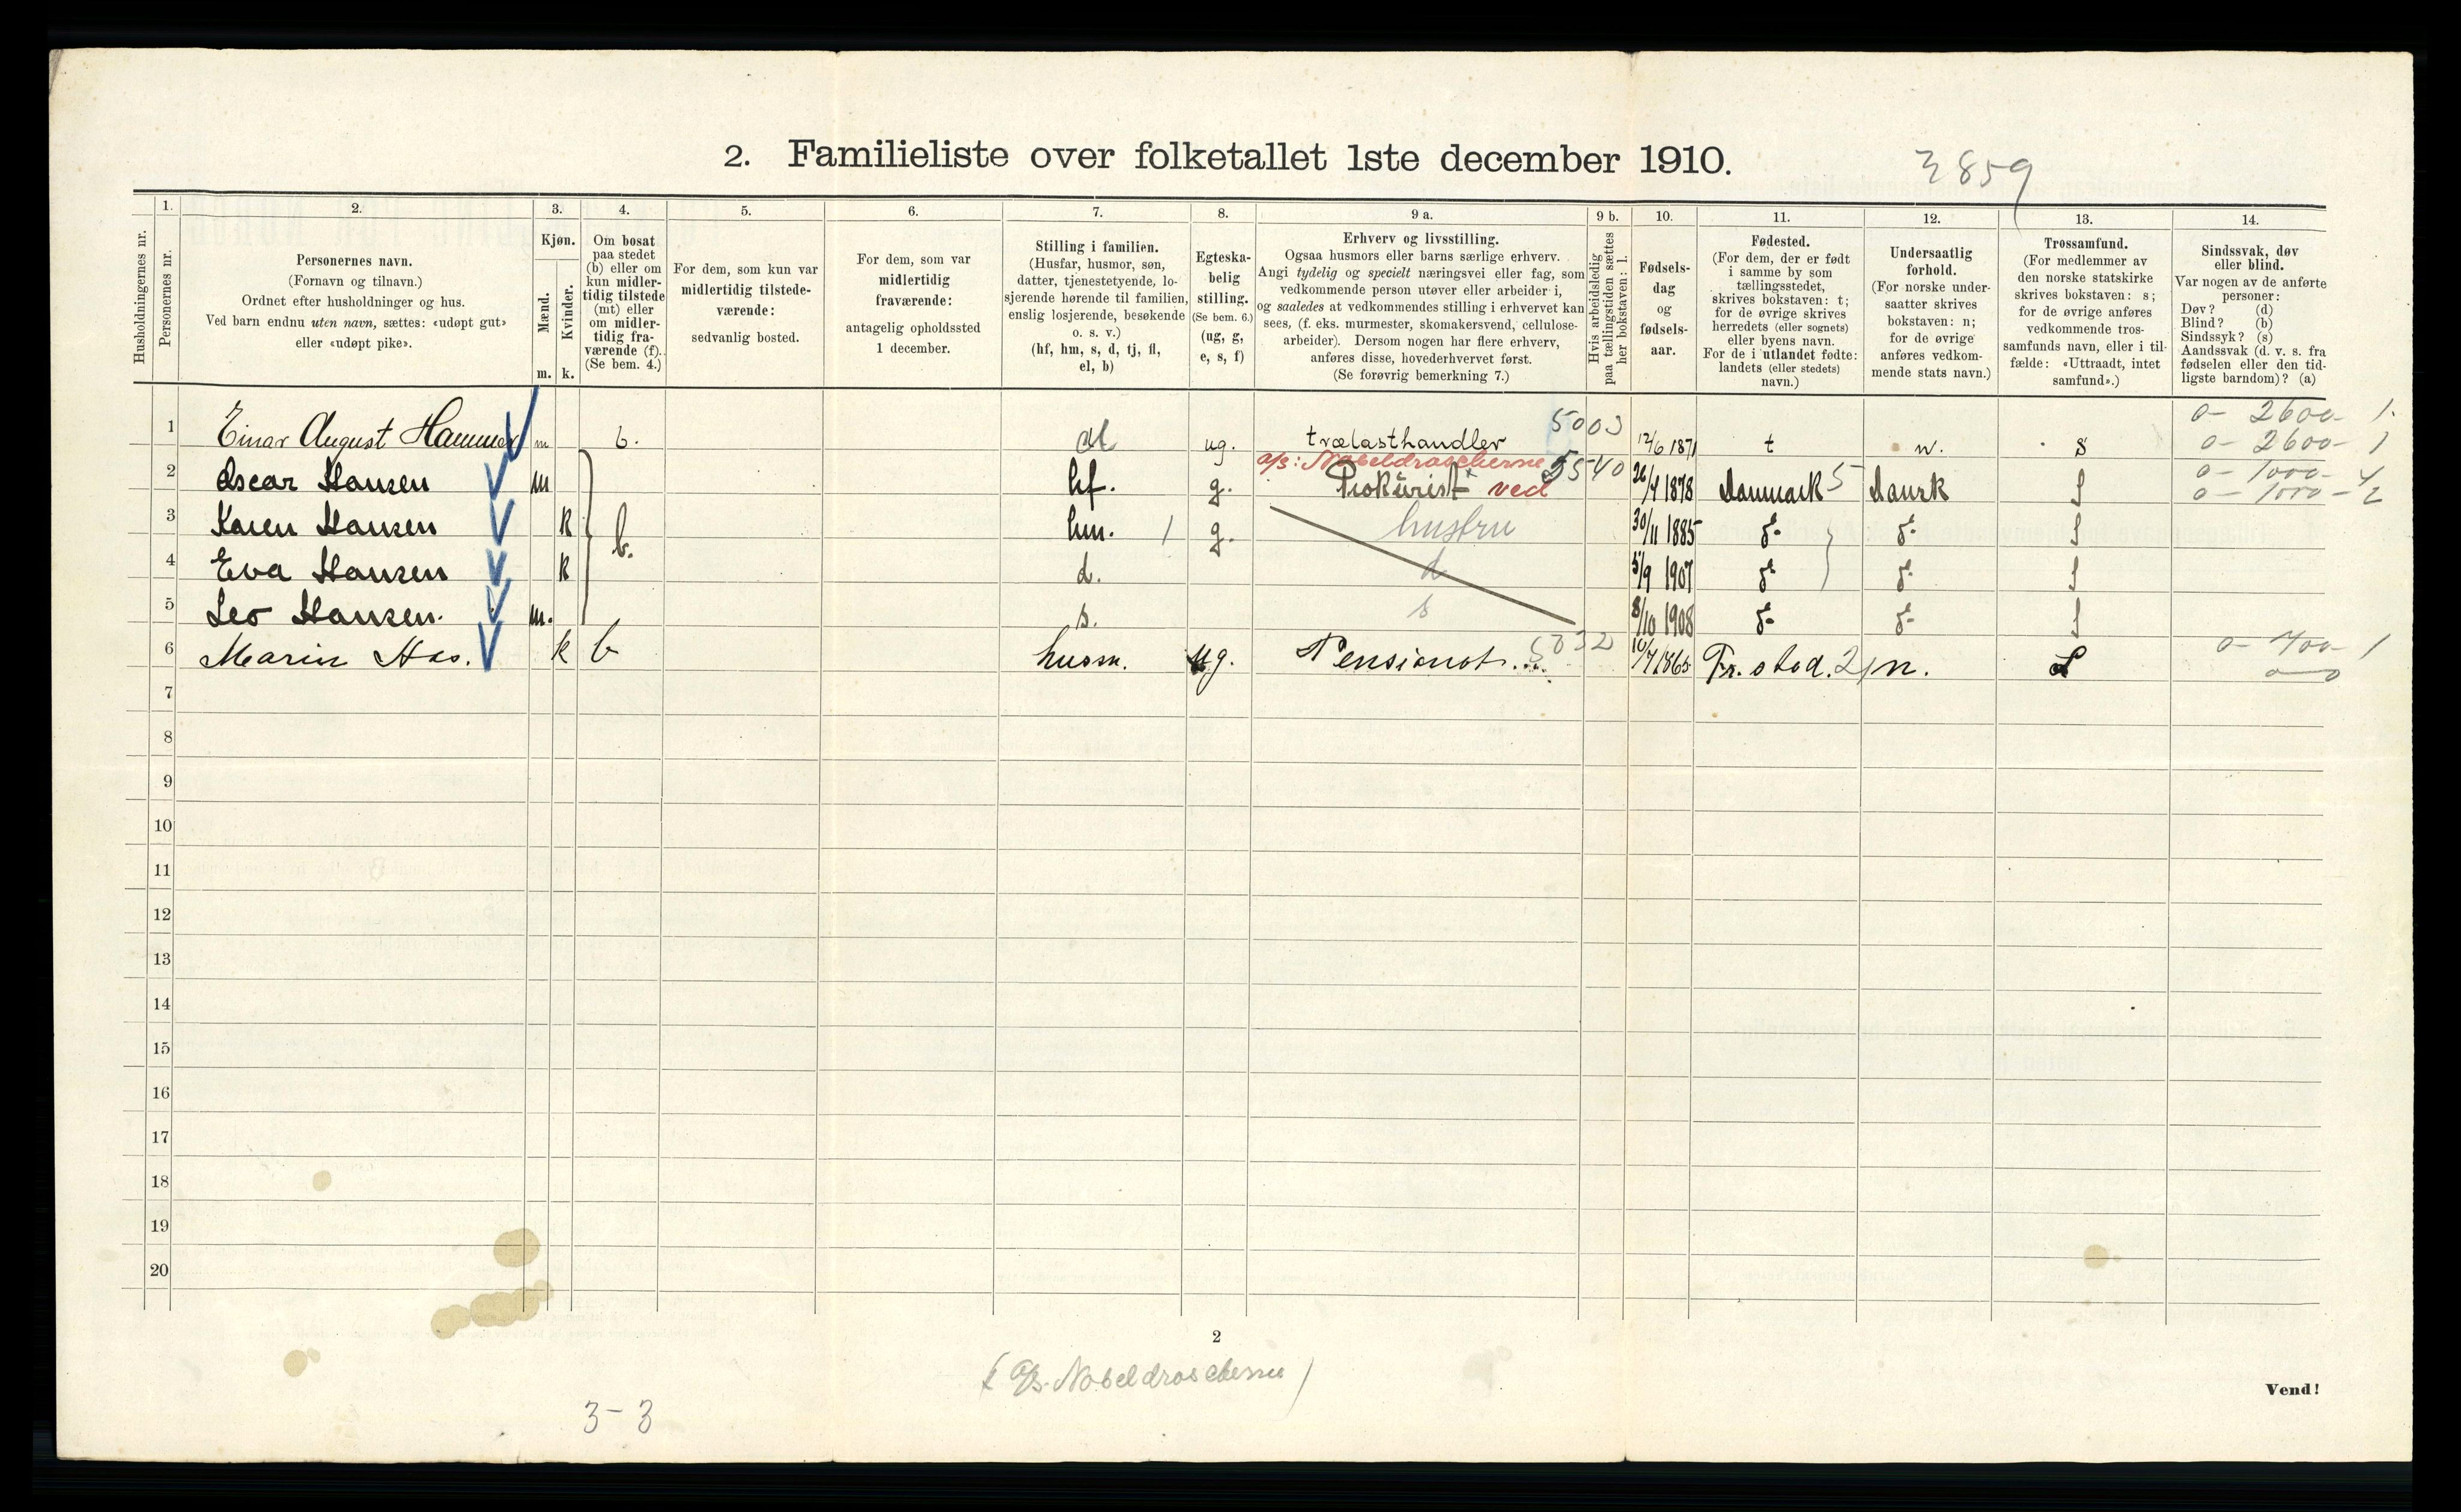 2. Familieliste over folketallet 1ste december 1910.
3859
Husholdningernes nr.
1.
Personernes nr.
2.
Personernes navn.
(Fornavn og tilnavn.)
Ordnet efter husholdninger og hus.
Ved barn endnu uten navn, sættes: «udøpt gut»
eller «udøpt pike».
3.
Kjøn.
Mænd.
Kvinder.
m. k.
4.
Om bosat
paa stedet
(b) eller om
kun midler-
tidig tilstede
(mt) eller
om midler-
tidig fra-
værende (f).
(Se bem. 4.)
5.
For dem, som kun var
midlertidig tilstede-
værende:
sedvanlig bosted.
6.
For dem, som var
midlertidig
fraværende:
antagelig opholdssted
1 december.
7.
Stilling i familien.
(Husfar, husmor, søn,
datter, tjenestetyende, lo-
sjerende hørende til familien,
enslig losjerende, besøkende
o. s. v.)
(hf, hm, s, d, tj, fl,
el, b)
8.
Egteska-
belig
stilling.
(Se bem. 6.)
(ug, g,
e, s, f)
9 a.
Erhverv og livsstilling.
Ogsaa husmors eller barns særlige erhverv.
Angi tydelig og specielt næringsvei eller fag, som
vedkommende person utøver eller arbeider i,
og saaledes at vedkommendes stilling i erhvervet kan
sees, (f. eks. murmester, skomakersvend, cellulose-
arbeider). Dersom nogen har flere erhverv,
anføres disse, hovederhvervet først.
(Se forøvrig bemerkning 7.)
9 b.
Hvis arbeidsledig
paa tællingstiden sættes
her bokstaven: l.
10.
Fødsels-
dag
og
fødsels-
aar.
11.
Fødested.
(For dem, der er født
i samme by som
tællingsstedet,
skrives bokstaven: t;
for de øvrige skrives
herredets (eller sognets)
eller byens navn.
For de i utlandet fødte:
landets (eller stedets)
navn.)
12.
Undersaatlig
forhold.
(For norske under-
saatter skrives
bokstaven: n;
for de øvrige
anføres vedkom-
mende stats navn.)
13.
Trossamfund.
(For medlemmer av
den norske statskirke
skrives bokstaven: s;
for de øvrige anføres
vedkommende tros-
samfunds navn, eller i til-
fælde: «Uttraadt, intet
samfund».)
14.
Sindssvak, døv
eller blind.
Var nogen av de anførte
personer:
Døv? (d)
Blind? (b)
Sindssyk? (s)
Aandssvak (d. v. s. fra
fødselen eller den tid-
ligste barndom)? (a)
0- 2600- 1.
1 Einar August Hammer m b. el ug. trælasthandler 5003 12/6 1871 t n. s 0- 2600- 1
a/s: Nobeldroscherne 0- 1000- 4
2 Oscar Hansen m hf. g. Prokurist ved 5540 26/4 1878 Danmark 5 Dansk S 0- 1000- 2
3 Karen Hansen k b. hm. 1 g. hustru 30/11 1885 do do S
4 Eva Hansen k d. d 5/9 1907 do do S
5 Leo Hansen. m. s. s 8/10 1908 do do S
6 Marin Aas. k b husm. ug. Pensionat. 5032 10/7 1865 Fr.stad. 21 n. S 0- 400- 1
0-0
7
8
9
10
11
12
13
14
15
16
17
18
19
20
2
(a/s. Nobeldroscherne)
Vend!
3-3